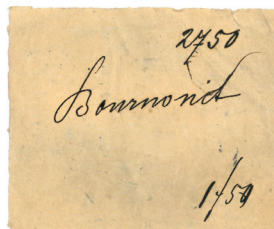 2750
Bournonit
1/50